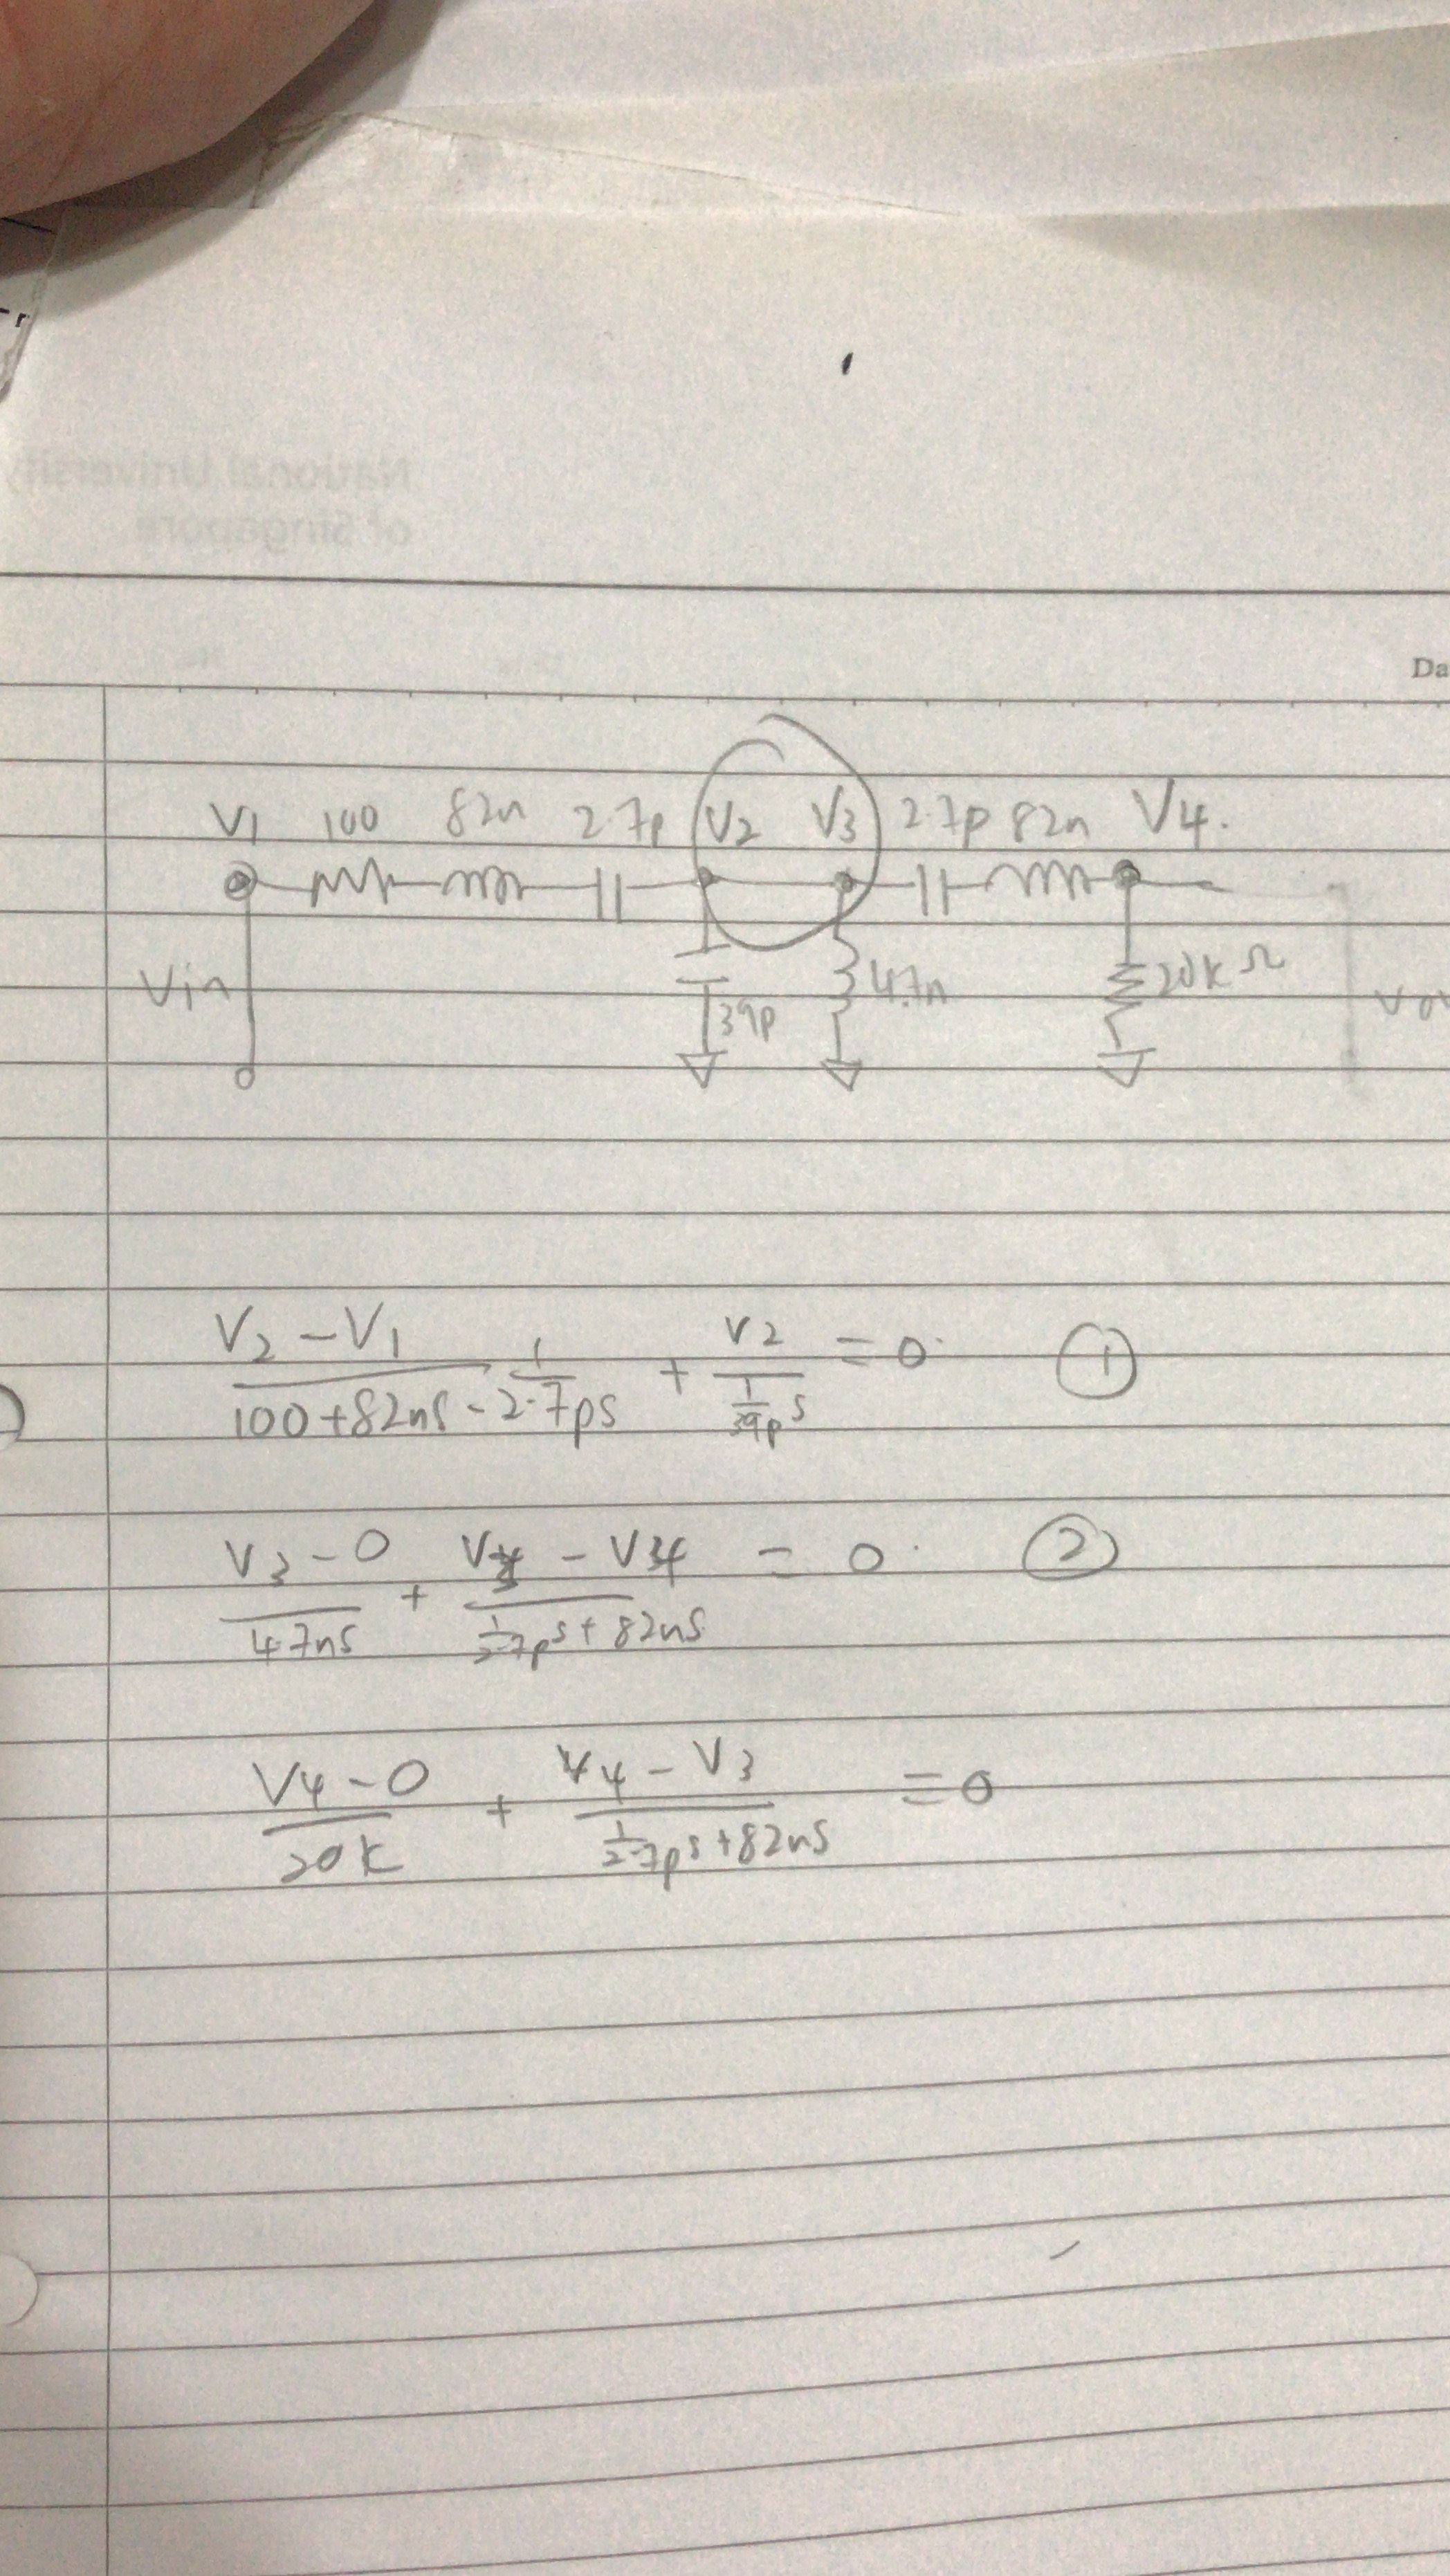 National University
of Singapore
Da
V1 100 82n 2.7p V2 V3 2.7p 82n V4.
Vin 39p 4.7n 20kΩ
V2 - V1 / 100+82ns - 1/2.7ps + V2 / 1/39p s = 0 ①
V3 - 0 / 4.7ns + V3 - V4 / 1/2.7p s + 82ns = 0 ②
V4 - 0 / 20k + V4 - V3 / 1/2.7p s + 82ns = 0